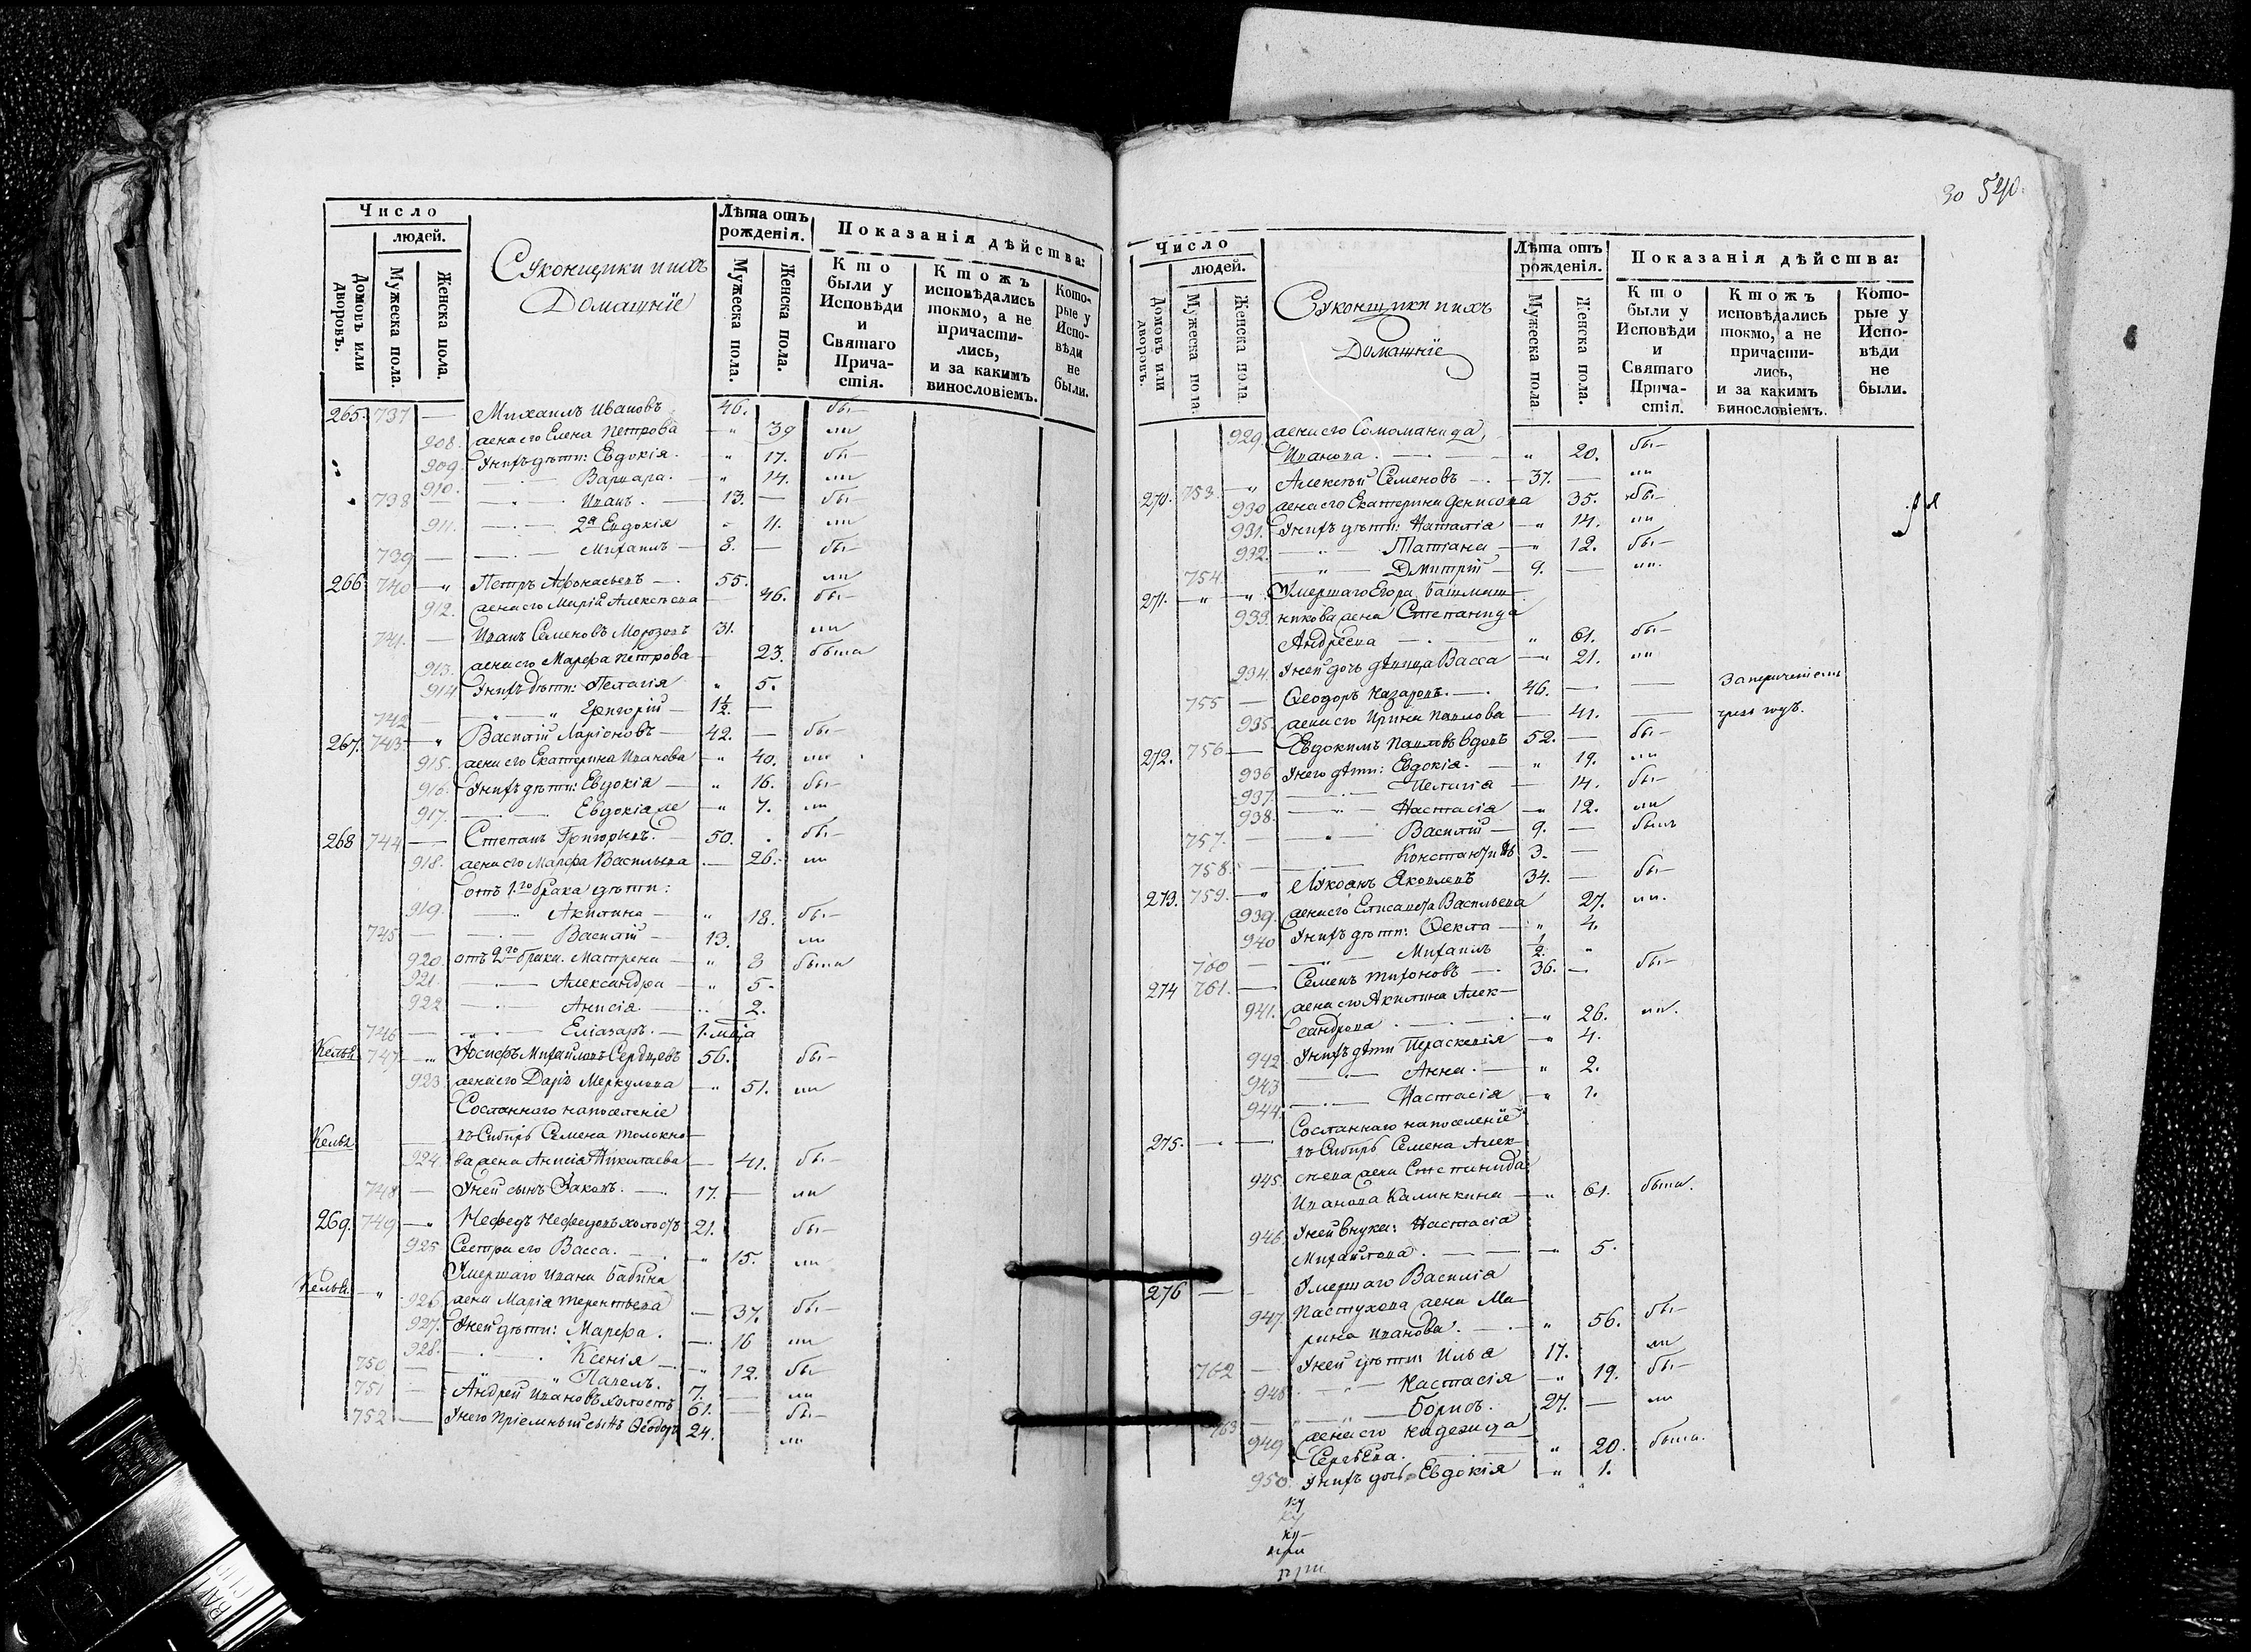 Число
людей.
Домовъ или дворовъ.
Мужеска пола.
Женска пола.
Суконщики и ихъ
Домашніе
Лѣта отъ
рожденія.
Мужеска пола.
Женска пола.
Показанія дѣйства:
Кто
были у
Исповѣди
и
Святаго
Прича-
стія.
Ктожъ
исповѣдались
токмо, а не
причасти-
лись,
и за какимъ
винословіемъ.
Кото-
рые у
Испо-
вѣди
не
были.
265. 737 — Михаилъ Ивановъ 46. бы—
908. жена его Елена Петрова — " 39 ли
909. У нихъ дѣти: Евдокія. — " 17. бы—
910. — Варвара. — " 14. ли
738 — Иванъ. — 13. — бы—
911. — 2я Евдокія " 11. ли
739 — Михаилъ — 8. — бы—
266 740 — " Петръ Афонасьевъ — 55. ли
912. жена его Марія Алексѣева 46. бы—
741. — Иванъ Семеновъ Морозовъ 31. ли
913. жена его Марфа Петрова — 23. была
914 У нихъ дѣти: Пелагія " 5.
742 — " Григорій — 1½. —
267. 743. — " Василій Ларіоновъ — 42. — бы—
915. жена его Екатерина Иванова — " 40. ли
916. У нихъ дѣти: Евдокія — " 16. бы—
917. — Евдокія же — " 7. ли
268 744 — Степанъ Григорьевъ. — 50. . бы—
918. жена его Марфа Васильева — 26. ли
отъ 1.го брака дѣти:
919. — Акилина — " 18. бы—
745 — Василій — 13. ли
920. отъ 2го брака. Матрена — " 8 была
921. — Александра — " 5.
922 — Анисія. — 2.
746 — " Еліазаръ. — 1. мца
Келья 747 — " Іосифъ Михайловъ Сердцевъ 56. бы—
923. жена его Дарья Меркулова — " 51. ли
Сосланнаго на поселеніе
Келья — въ Сибирь Семена Толокно—
924. ва жена Анисія Николаева — 41. бы—
748 — У ней сынъ Яковъ. — 17. — ли
269. 749 — " Нефедъ Нефедовъ холостъ 21. бы—
925 Сестра его Васса. — " 15. ли
Умершаго Ивана Бабина
Келья — " 926. жена Марія Терентьева — 37. бы—
927. У ней дѣти: Марфа. — 16 ли
928. — Ксенія — " 12. бы
750 — " Павелъ. 7. — ли
751 — Андрей Ивановъ холостъ 61. — бы—
752 — У него пріемный сынъ Ѳеодоръ 24. ли
30 540.
Число
людей.
Домовъ или дворовъ.
Мужеска пола.
Женска пола.
Суконщики и ихъ
Домашніе
Лѣта отъ
рожденія.
Мужеска пола
Женска пола.
Показанія дѣйства:
Кто
были у
Исповѣди
и
Святаго
Прича-
стія.
Ктожъ
исповѣдались
токмо, а не
причасти-
лись,
и за какимъ
винословіемъ.
Кото-
рые у
Испо-
вѣди
не
были.
929. жена его Соломанида,
Иванова. — " 20. бы—
270. 753. — " Алексѣй Семеновъ — 37. — ли
930 жена его Екатерина Денисова 35. бы—
931. У нихъ дѣти: Наталіа — " 14. ли
932. — " Татіана — " 12. бы—
754. — " — Дмитрій — 9. — ли.
271. — " — " Умершаго Егора Башмаш—
933. никова жена Степанида
Андреева — " 61. бы—
934. У ней дочь дѣвица Васса — " 21. ли
755 — Ѳеодоръ Назаровъ. — 46. — —
935. жена его Ирина Павлова — 41. — чрезъ годъ.
272. 756 — Евдокимъ Павловъ вдовъ 52. — бы—
936 У него дѣти: Евдокіа. — " 19. ли
937. — Пелагіа — 14. бы—
938. — " Настасіа — " 12. ли
757. — " Василій — 9. — былъ
758. — Константинъ 3. —
273. 759. — " Лукоянъ Яковлевъ 34. — бы—
939. жена его Елисавета Васильева 27. ли.
940 У нихъ дѣти: Ѳекла — " 4.
760 — " Михаилъ ½. "
274 761. — Семенъ Тихоновъ — 36. — бы—
941. жена его Акилина Алек—
сандрова. — " 26. ли.
942. У нихъ дѣти Параскевія — " 4.
943 — Анна. — " 2.
944. — Настасія — "
Сосланнаго на поселеніе
275. — — въ Сибирь Семена Алек—
945. сѣева жена Степанида
Иванова Калинкина — " 61. была.
946. У ней внука: Настасіа
Михайлова. — " 5.
276 — — Умершаго Василіа
947. Пастухова жена Ма—
рина Иванова. — " 56. бы—
762 — У ней дѣти Илья 17. ли
948. — " Настасія — " 19. бы—
763 — " Борисъ. 27. — ли
949 жена его Надежда
Сергѣева. — " 20. была.
950. У нихъ дочь Евдокія — " 1.
ку
ку
ку—